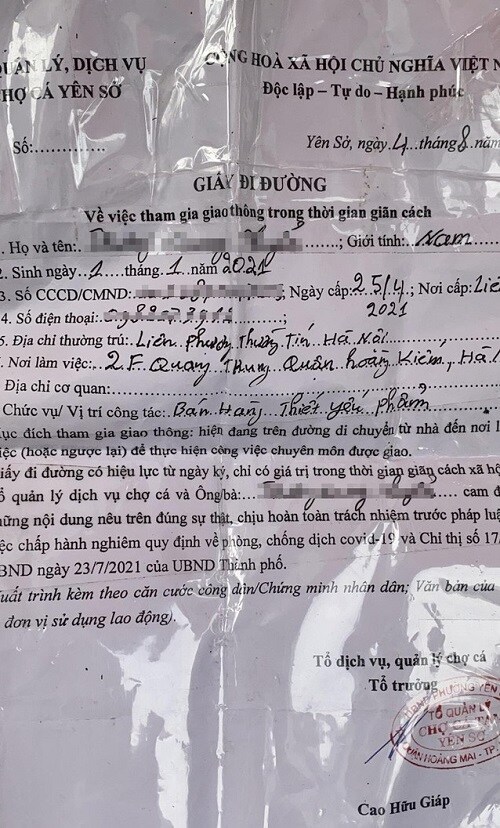 QUẢN LÝ, DỊCH VỤ
CHỢ CÁ YÊN SỞ
CỘNG HOÀ XÃ HỘI CHỦ NGHĨA VIỆT N
Độc lập – Tự do – Hạnh phúc
Số:
Yên Sở, ngày 4 tháng 8 năm
GIẤY ĐI ĐƯỜNG
Về việc tham gia giao thông trong thời gian giãn cách
1. Họ và tên: ; Giới tính: Nam
2. Sinh ngày 1 tháng 1 năm 2021
3. Số CCCD/CMND: ; Ngày cấp: 25/4 2021 ; Nơi cấp: Liê
4. Số điện thoại:
5. Địa chỉ thường trú: Liên Phương Thường Tín Hà Nội
Nơi làm việc: 2.F. Quang Trung Quận hoàng Kiếm, Hà N
Địa chỉ cơ quan:
Chức vụ/ Vị trí công tác: Bán Hàng Thiết yếu phẩm
ục đích tham gia giao thông: hiện đang trên đường di chuyển từ nhà đến nơi l
iệc (hoặc ngược lại) để thực hiện công việc chuyên môn được giao.
iấy đi đường có hiệu lực từ ngày ký, chỉ có giá trị trong thời gian giãn cách xã hộ
ổ quản lý dịch vụ chợ cá và Ông/bà: cam đ
hững nội dung nêu trên đúng sự thật, chịu hoàn toàn trách nhiệm trước pháp luậ
ệc chấp hành nghiêm quy định về phòng, chống dịch covid-19 và Chỉ thị số 17/
BND ngày 23/7/2021 của UBND Thành phố.
uất trình kèm theo căn cước công dân/Chứng minh nhân dân; Văn bản của
đơn vị sử dụng lao động).
Tổ dịch vụ, quản lý chợ cá
Tổ trưởng
PHƯỜNG YÊN
TỔ QUẢN LÝ
CHỢ CÁ
YÊN SỞ
QUẬN HOÀNG MAI - TP
Cao Hữu Giáp